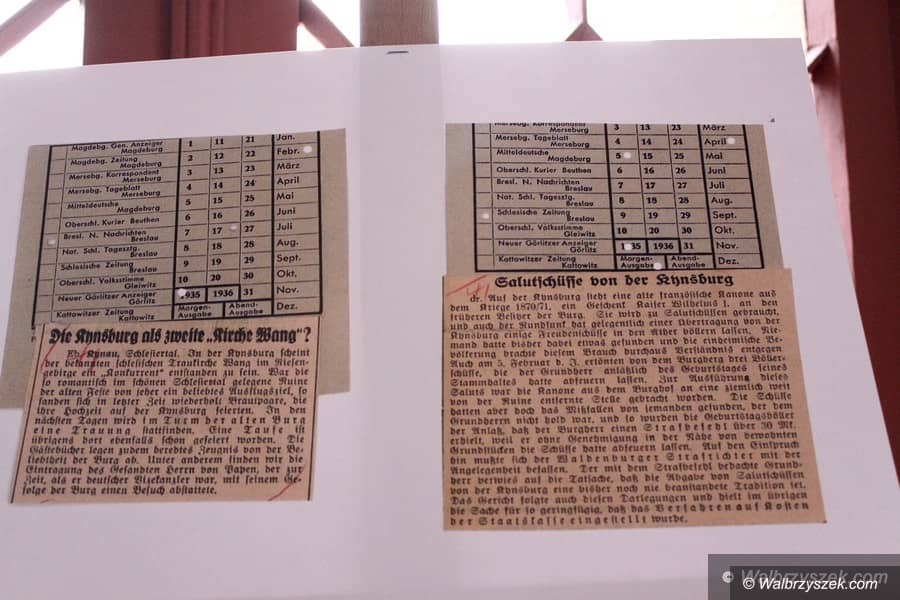 Magdebg. Gen. Anzeiger 1 11 21 Jan.
Magdeburg
Magdebg. Zeitung 2 12 22 Febr.
Magdeburg
Merseb. Korrespondent 3 13 23 März
Merseburg
Mersebg. Tageblatt 4 14 24 April
Merseburg
Mitteldeutsche 5 15 25 Mai
Magdeburg
Oberschl. Kurier Beuthen 6 16 26 Juni
Bresl. N. Nachrichten 7 17 27 Juli
Breslau
Nat. Schl. Tagesztg. 8 18 28 Aug.
Breslau
Schlesische Zeitung 9 19 29 Sept.
Breslau
Oberschl. Volksstimme 10 20 30 Okt.
Gleiwitz
Neuer Görlitzer Anzeiger 1935 1936 31 Nov.
Görlitz
Kattowitzer Zeitung Morgen-Ausgabe Abend-Ausgabe Dez.
Kattowitz
Die Kynsburg als zweite „Kirche Wang"?
Kynau, Schlesiertal. In der Kynsburg scheint
der bekannten schlesischen Traukirche Wang im Riesen-
gebirge ein „Konkurrent" entstanden zu sein. War die
so romantisch im schönen Schlesiertal gelegene Ruine
der alten Feste von jeher ein beliebtes Ausflugsziel, so
fanden sich in letzter Zeit wiederholt Brautpaare, die
ihre Hochzeit auf der Kynsburg feierten. In den
nächsten Tagen wird im Turm der alten Burg
eine Trauung stattfinden. Eine Taufe ist
übrigens dort ebenfalls schon gefeiert worden. Die
Gästebücher legen zudem beredtes Zeugnis von der Be-
liebtheit der Burg ab. Unter anderem finden wir die
Eintragung des Gesandten Herrn von Papen, der zur
Zeit, als er deutscher Vizekanzler war, mit seinem Ge-
folge der Burg einen Besuch abstattete.
Mersebg. Korrespondent 3 13 23 März
Merseburg
Mersebg. Tageblatt 4 14 24 April
Merseburg
Mitteldeutsche 5 15 25 Mai
Magdeburg
Oberschl. Kurier Beuthen 6 16 26 Juni
Bresl. N. Nachrichten 7 17 27 Juli
Breslau
Nat. Schl. Tagesztg. 8 18 28 Aug.
Breslau
Schlesische Zeitung 9 19 29 Sept.
Breslau
Oberschl. Volksstimme 10 20 30 Okt.
Gleiwitz
Neuer Görlitzer Anzeiger 1935 1936 31 Nov.
Görlitz
Kattowitzer Zeitung Morgen-Ausgabe Abend-Ausgabe Dez.
Kattowitz
Salutschüsse von der Kynsburg
dr. Auf der Kynsburg steht eine alte französische Kanone aus
dem Kriege 1870/71, ein Geschenk Kaiser Wilhelms I. an den
früheren Besitzer der Burg. Sie wird zu Salutschüssen gebraucht,
und auch der Rundfunk hat gelegentlich einer Übertragung von der
Kynsburg einige Freudenschüsse in den Äther dröhnen lassen. Nie-
mand hatte bisher dabei etwas gefunden und die einheimische Be-
völkerung brachte diesem Brauch durchaus Verständnis entgegen
Auch am 5. Februar d. J. ertönten von dem Burgberg drei Böller-
schüsse, die der Grundherr anläßlich des Geburtstages seines
Stammhalters hatte abfeuern lassen. Zur Ausführung dieses
Saluts war die Kanone aus dem Burghof an eine ziemlich weit
von der Ruine entfernte Stelle gebracht worden. Die Schüsse
hatten aber doch das Mißfallen von jemanden gefunden, der dem
Grundherrn nicht hold war, und so wurden die Geburtstagsböller
der Anlaß, daß der Burgherr einen Strafbefehl über 30 Mk.
erhielt, weil er ohne Genehmigung in der Nähe von bewohnten
Grundstücken die Schüsse hatte abfeuern lassen. Auf den Einspruch
hin mußte sich der Waldenburger Strafrichter mit der
Angelegenheit befassen. Der mit dem Strafbefehl bedachte Grund-
herr verwies auf die Tatsache, daß die Abgabe von Salutschüssen
von der Kynsburg eine bisher noch nie beanstandete Tradition sei.
Das Gericht folgte auch diesen Darlegungen und hielt im übrigen
die Sache für so geringfügig, daß das Verfahren auf Kosten
der Staatskasse eingestellt wurde.
© Walbrzyszek.com
© Walbrzyszek.com